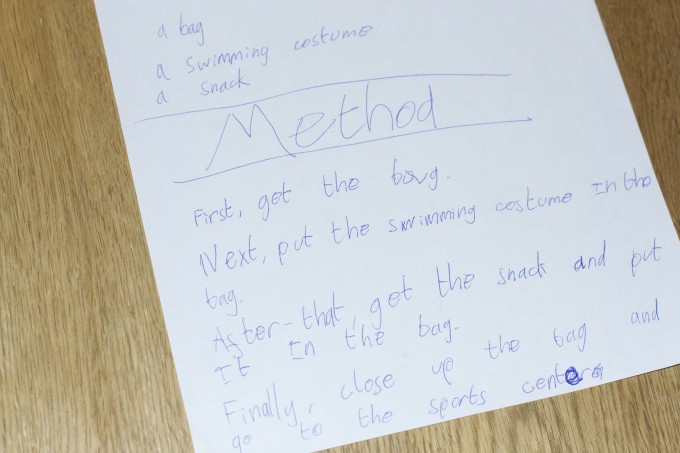 a bag
a swimming costume
a snack
Method
First, get the bag.
Next, put the swimming costume in the
bag.
After-that, get the snack and put
it in the bag.
Finally, close up the bag and
go to the sports centere